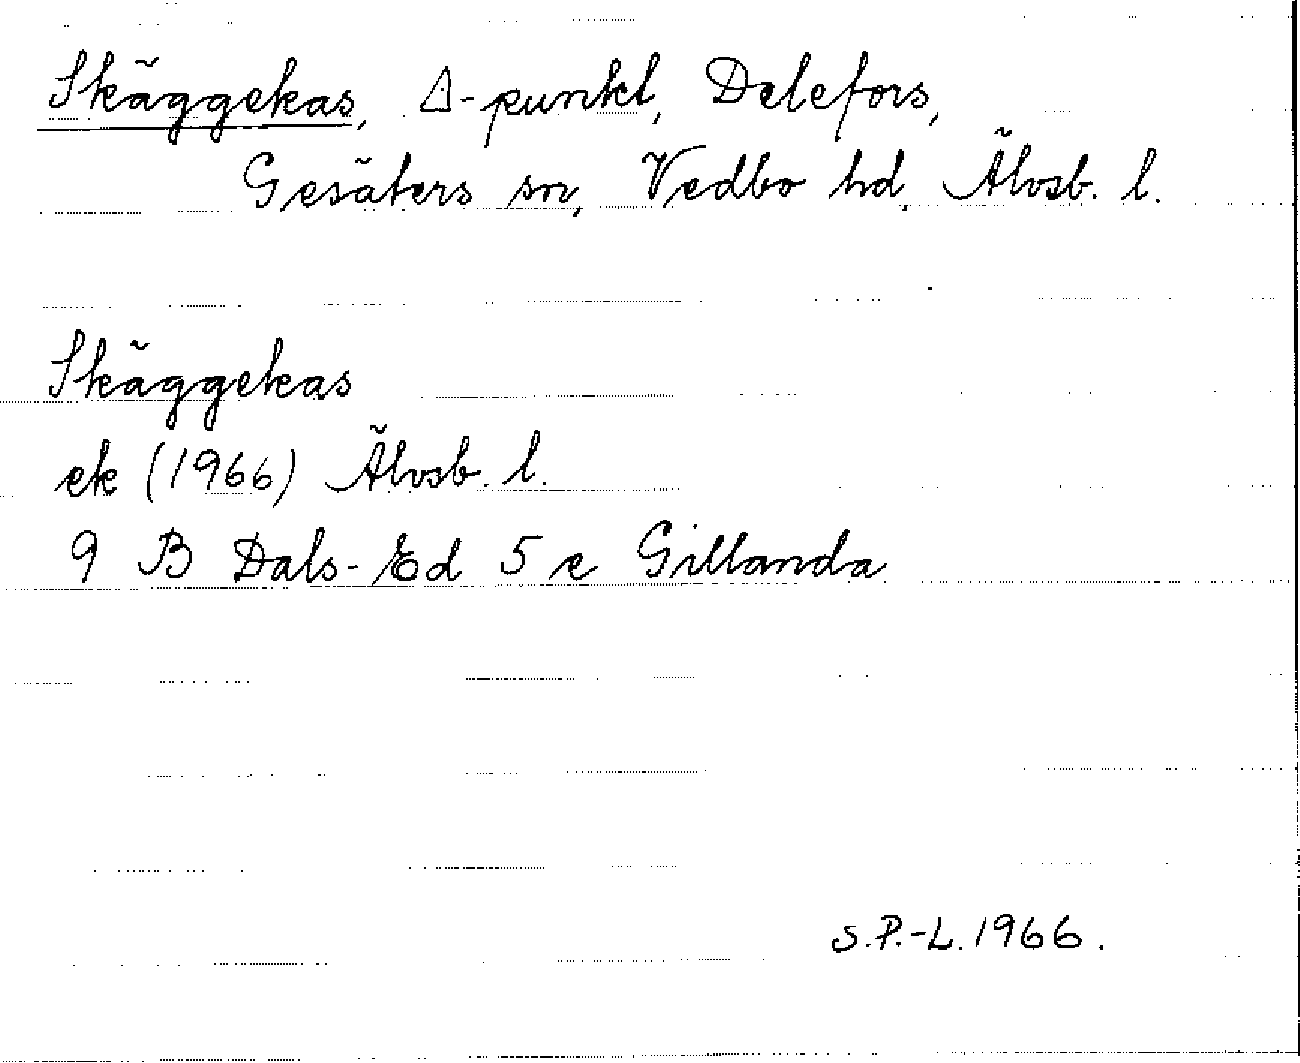 Skäggekas, Δ-punkt, Delefors,
Gesäters sn, Vedbo hd, Älvsb. l.
Skäggekas
ek (1966) Älvsb. l.
9 B Dals-Ed 5 e Gillanda
S.P.-L. 1966.